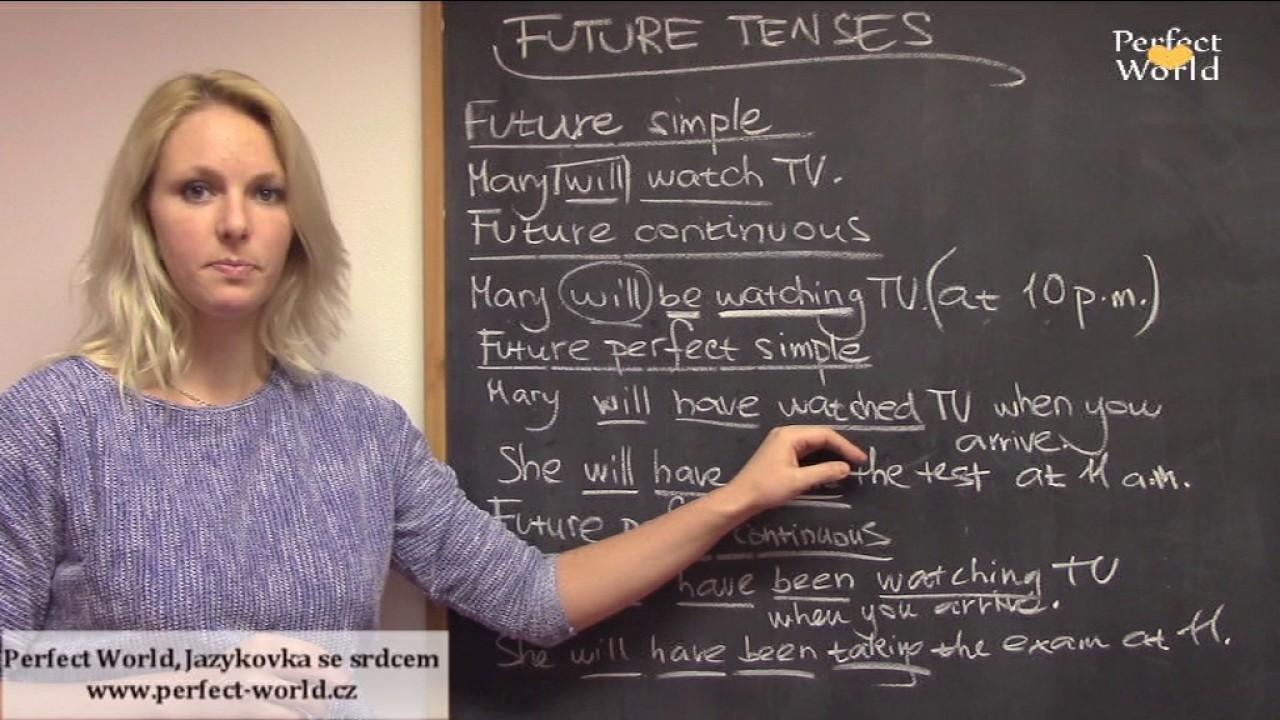 FUTURE TENSES
Perfect
World
Future simple
Mary will watch TV.
Future continuous
Mary will be watching TV. (at 10 p.m.)
Future perfect simple
Mary will have watched TV when you
arrive.
She will have the test at 11 a.m.
Future continuous
have been watching TV
when you arrive.
She will have been taking the exam at 11.
Perfect World, Jazykovka se srdcem
www.perfect-world.cz